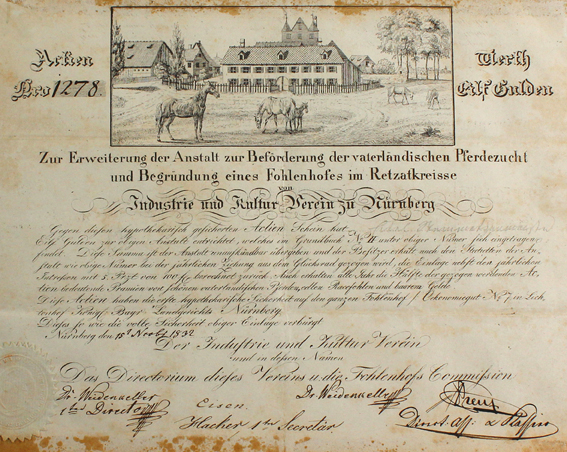 Actien
Nro 1278.
Werth
Eilf Gulden
Zur Erweiterung der Anstalt zur Beförderung der vaterländischen Pferdezucht
und Begründung eines Fohlenhofes im Retzatkreisse
von
Industrie und Kultur Verein zu Nürnberg
Gegen diesen hypothekarisch gesicherten Actien Schein hat
Eilf Gulden zur obigen Anstalt entrichtet, welches im Grundbuch No II unter obiger Numer sich eingetragen
findet. Diese Summa ist der Anstalt unaufkündbar übergeben und der Besitzer erhält nach den Statuten der An-
stalt wie obige Numer bei der jaehrlichen Ziehung aus dem Glücksrad gezogen wird, die Einlage nebst den jährlichen
Interesen mit Przt zurück. Auch erhalten alle Jahr die Hälfte der gezogen werdenden Ac-
tien bedeutende Praemien von schönen vaterländischen Pferden, edlen Racefohlen und baarem Gelde.
Diese Actien haben die erste hypothekarische Sicherheit auf den ganzen Fohlenhof Oekonomiegut No 7 in Lich-
tenhof Königl. Bayr. Landgerichts Nürnberg.
Dieses so wie die volle Sicherheit obiger Einlage verbürgt
Nürnberg den 15t Novbr 1832
Der Industrie und Kultur Verein
und in dessen Namen
Das Directorium dieses Vereins u. die Fohlenhofs Commission
Dr. Weidenkeller
1ter Director
Eisen.
Hacker 1ter Secretär.
Dr Weidenkeller